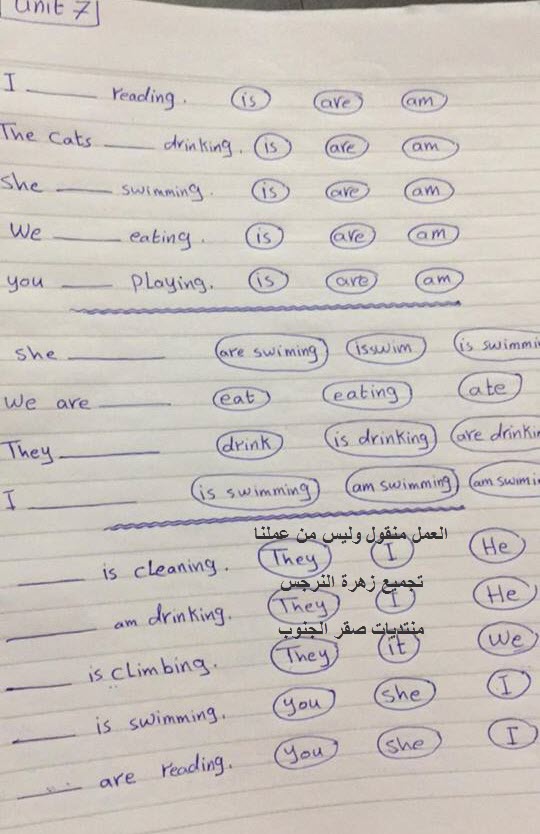 Unit 7
I ______ reading. is are am
The cats ____ drinking. is are am
She ____ swimming. is are am
We ____ eating. is are am
you ____ playing. is are am
she ______ are swiming isswim is swimmi
We are ______ eat eating ate
They ______ drink is drinking are drinkin
I ______ is swimming am swimming am swimi
العمل منقول وليس من عملنا
____ is cleaning. They I He
تجميع زهرة النرجس
____ am drinking. They I He
منتديات صقر الجنوب
____ is climbing. They it We
____ is swimming. you she I
____ are reading. you she I